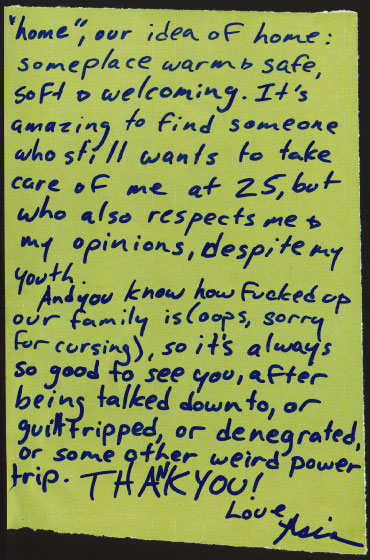 "home", our idea of home:
someplace warm & safe,
soft & welcoming. It's
amazing to find someone
who still wants to take
care of me at 25, but
who also respects me &
my opinions, despite my
youth.
And you know how fucked up
our family is (oops, sorry
for cursing), so it's always
so good to see you, after
being talked down to, or
guilt tripped, or denegrated,
or some other weird power
trip. THANK YOU!
Love,
Asia